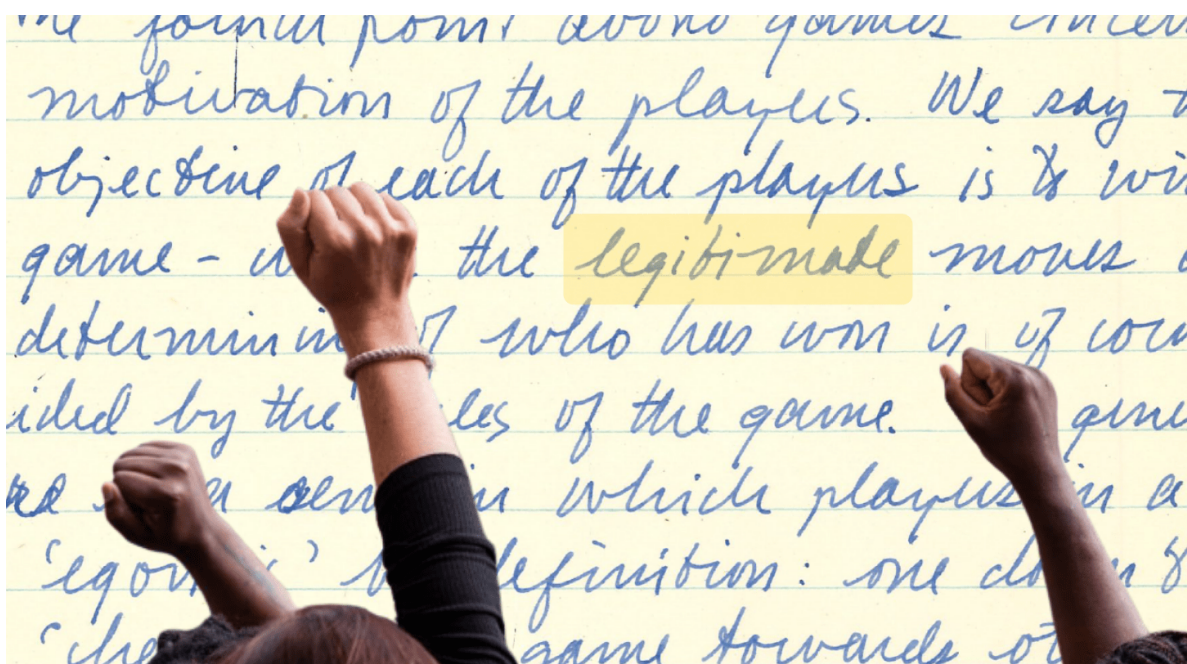 point about games concer
motivation of the players. We say
objective of each of the players is to wi
game - the legitimate moves
determinin of who has won is of cou
ided by the les of the game.
in which players in a
definition: one
game towards ot